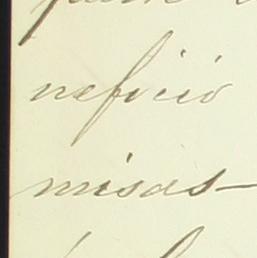 neficio
misas-